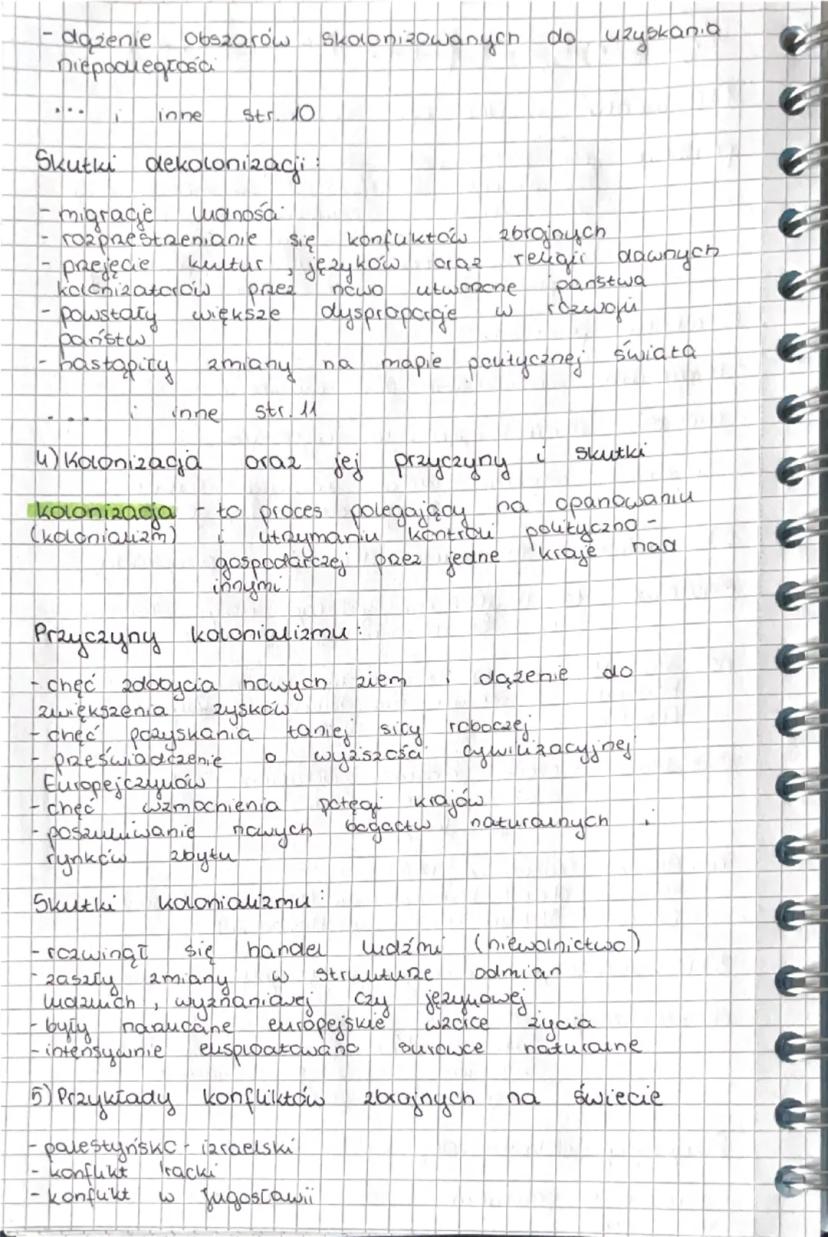 - dążenie obszarów skolonizowanych do uzyskania
niepodległości
... i inne str. 10
Skutki dekolonizacji:
- migracje ludności
- rozprzestrzenianie się konfliktów zbrojnych
- przejęcie kultur, języków oraz religii dawnych
kolonizatorów przez nowo utworzone państwa
- powstały większe dysproporcje w rozwoju
państw
- nastąpiły zmiany na mapie politycznej świata
... i inne str. 11
4) Kolonizacja oraz jej przyczyny i skutki
kolonizacja - to proces polegający na opanowaniu
(kolonializm) i utrzymaniu kontroli polityczno -
gospodarczej przez jedne kraje nad
innymi.
Przyczyny kolonializmu:
- chęć zdobycia nowych ziem i dążenie do
zwiększenia zysków
- chęć pozyskania taniej siły roboczej
- przeświadczenie o wyższości cywilizacyjnej
Europejczyków
- chęć wzmocnienia potęgi krajów
- poszukiwanie nowych bogactw naturalnych i
rynków zbytu
Skutki kolonializmu:
- rozwinął się handel ludźmi (niewolnictwo)
- zaszły zmiany w strukturze odmian
ludzkich, wyznaniowej czy językowej
- były narzucane europejskie wzorce życia
- intensywnie eksploatowano surowce naturalne
5) Przykłady konfliktów zbrojnych na świecie
- palestyńsko - izraelski
- konflikt iracki
- konflikt w Jugosławii